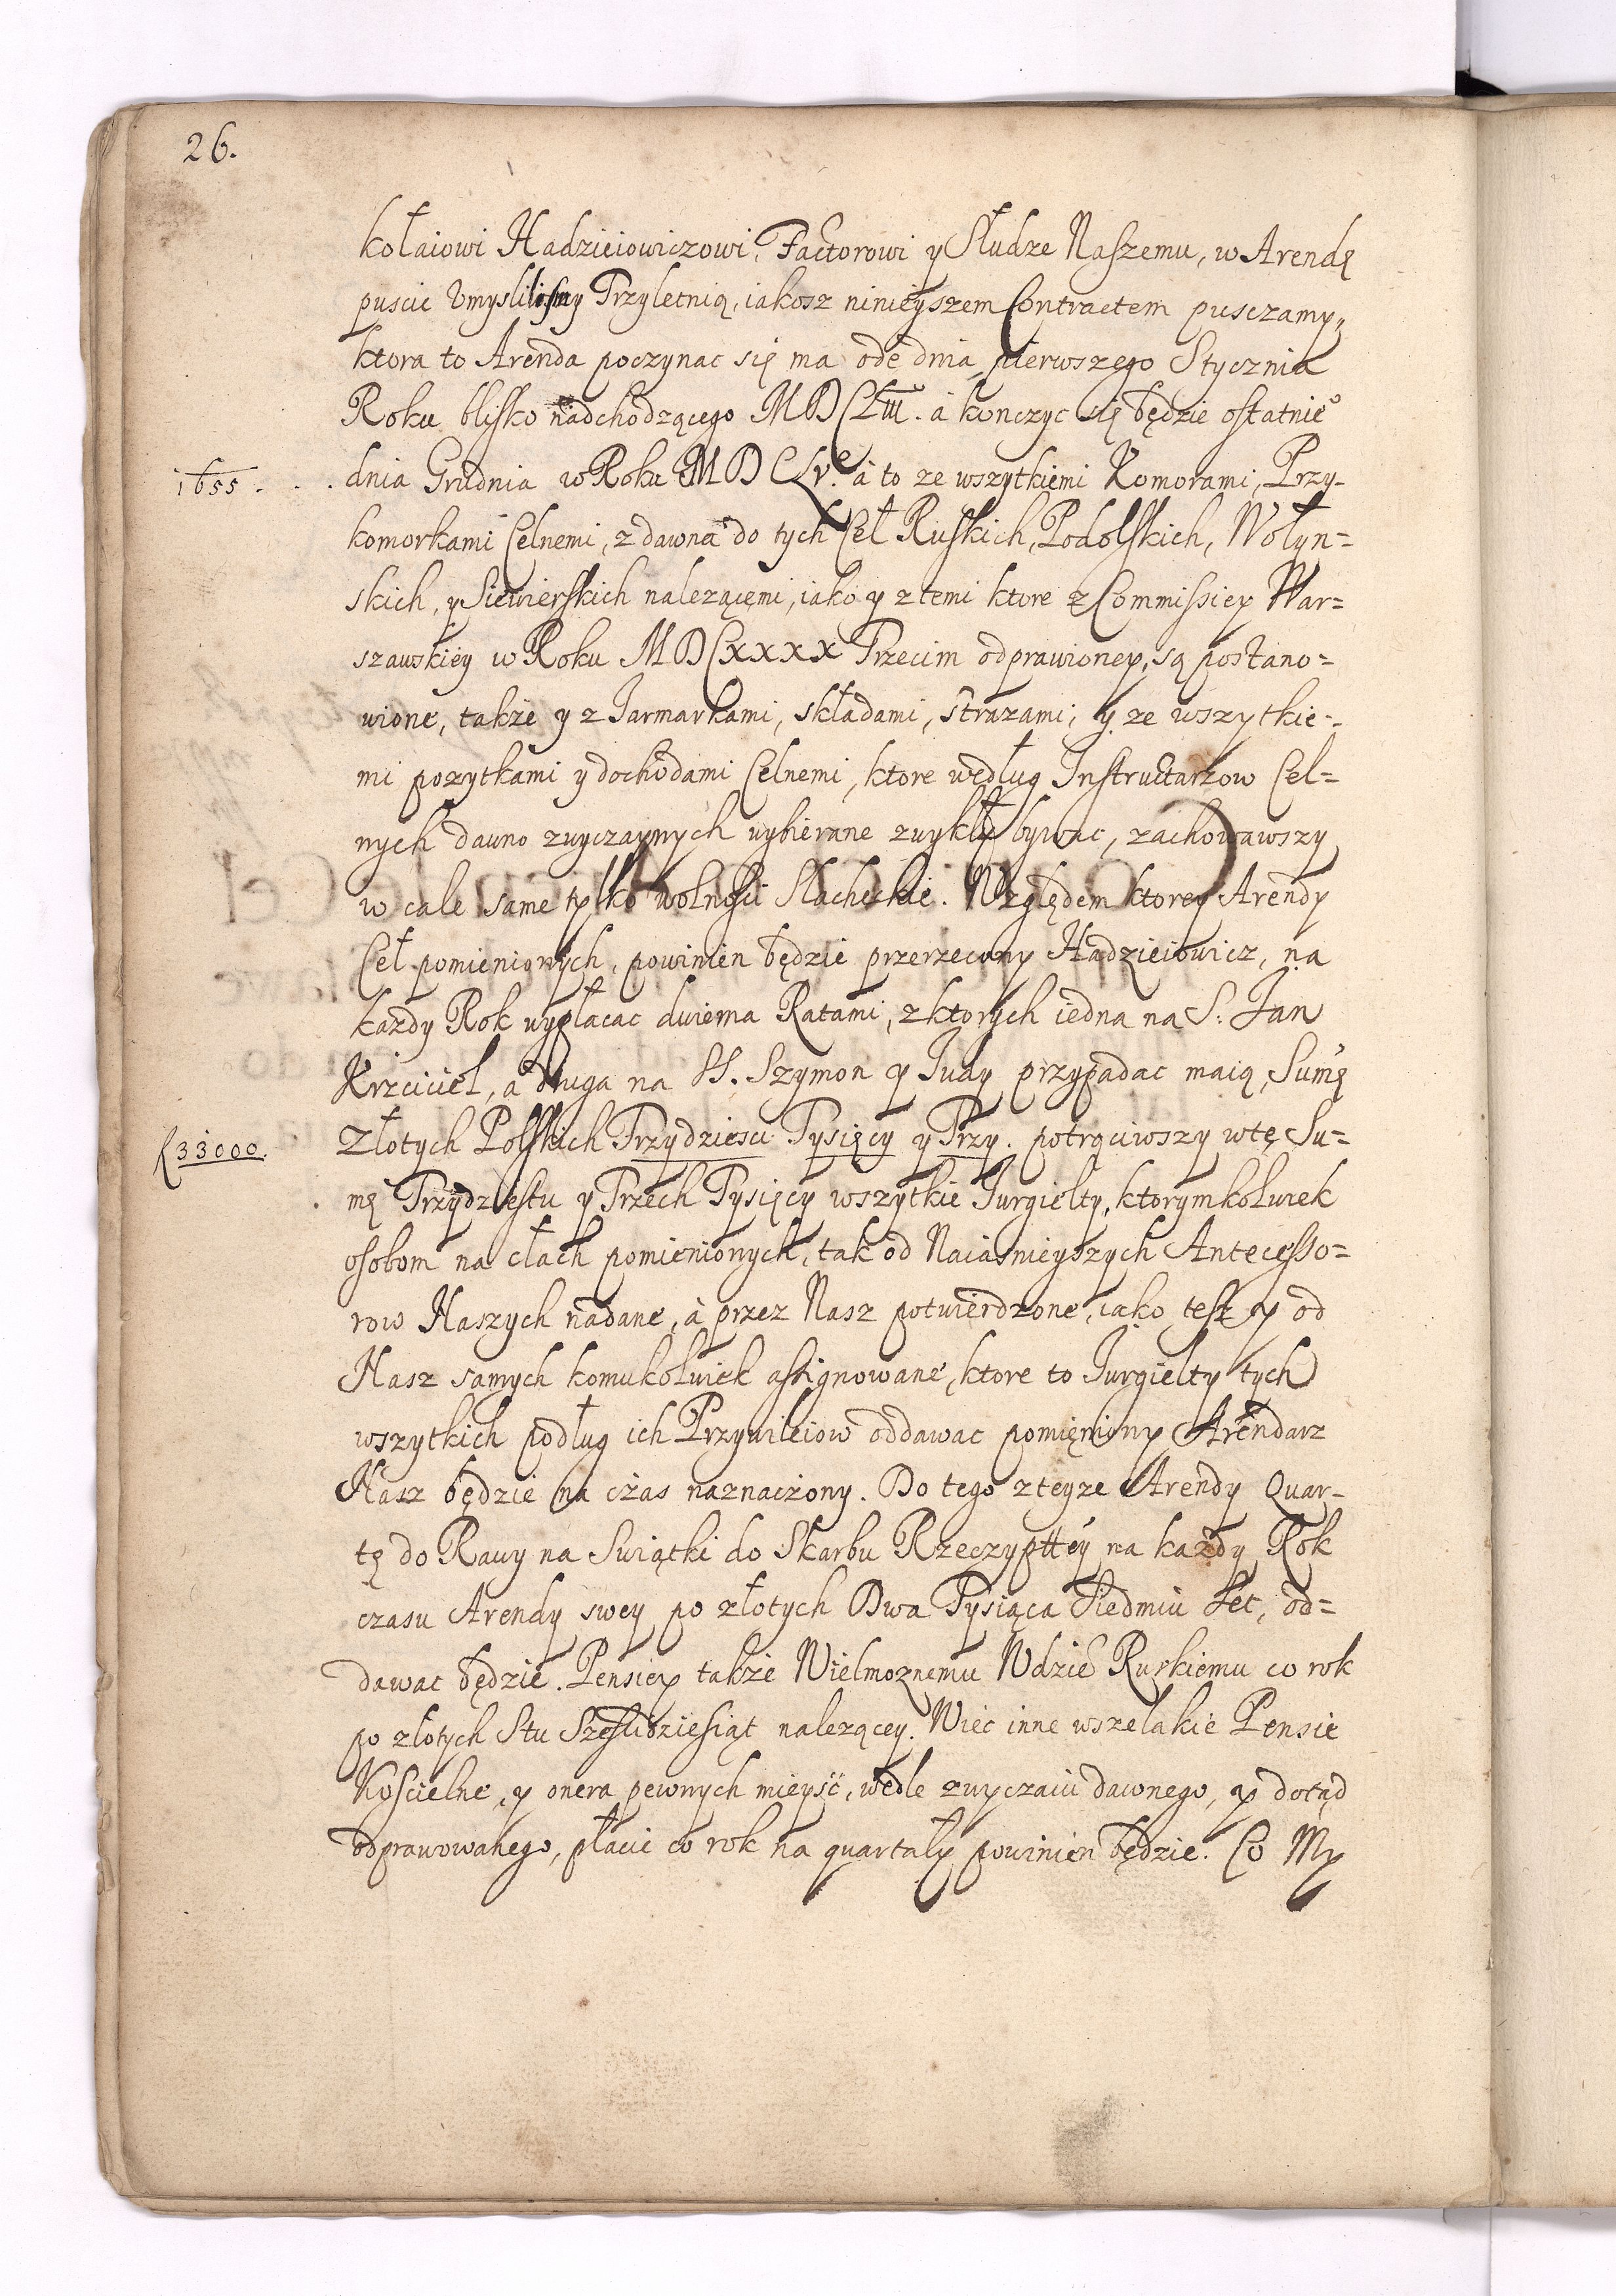 26.
kołaiowi Hadzieiowiczowi, Factorowi y Słudze Naszemu, w Arendę
puscic Vmyslilismy Trzyletnią, iakosz ninieyszem Contractem pusczamy,
ktora to Arenda poczynac się ma ode dnia pierwszego Stycznia
Roku blisko nadchodzącego MDCLIII. à konczyc się będzie ostatnie°
1655 . . . dnia Grudnia w Roku MDCLV. à to ze wszytkiemi Komorami, Przy-
komorkami Celnemi, z dawna do tych Ceł Ruskich, Podolskich, Wołyn=
skich, y Siewierskich nalezącemi, iako y z temi ktore z Commissiey War=
szawskiey w Roku MDCxxxx Trzecim odprawioney, są postano=
wione, także y z Jarmarkami, składami, strazami, y ze wszytkie-
mi pozytkami y dochodami Celnemi, ktore według Instructarzow Cel=
nych dawno zwyczaynych wybierane zwykły bywac, zachowawszy
w cale same tylko wolnosci Slacheckie. Względem ktorey Arendy
Ceł pomienionych, powinien będzie przerzeczony Hadzieiowicz, na
kazdy Rok wypłacac dwiema Ratami, z ktorych iedna na S: Jan
Krzciciel, à druga na SS. Szymon y Judy przypadac maią, Sumę
R 33000. złotych Polskich Trzydziesci Tysięcy y Trzy. potrąciwszy w tę Su=
mę Trzydziestu y Trzech Tysięcy wszytkie Jurgielty, ktorymkolwiek
osobom na cłach pomienionych, tak od Naiasnieyszych Antecesso=
row Naszych nadane, à przez Nasz potwierdzone, iako tesz y od
Nasz samych komukolwiek assignowane, ktore to Jurgielty tych
wszytkich podług ich Przywileiow oddawac pomieniony Arendarz
Nasz będzie na czas naznaczony. Do tego z teyze Arendy Quar-
tę do Rawy na Swiątki do Skarbu Rzeczypttey na kazdy Rok
czasu Arendy swey po złotych Dwa Tysiąca Siedmiu Set, od=
dawac będzie. Pensiey także Wielmoznemu Wdzie Ruskiemu co rok
po zlotych Stu Szescidziesiąt nalezącey. Wiec inne wszelakie Pensie
Koscielne, y onera pewnych mieysc, wedle zwyczaiu dawnego, y dotąd
odprawowanego, płacic co rok na quartały powinien będzie. Co My